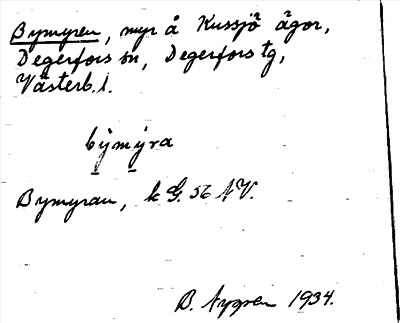 Bymyren, myr å Kussjö ägor,
Degerfors sn, Degerfors tg,
Västerb. l.
bymyra
Bymyran, k G. 56 NV.
B. Nygren 1934.